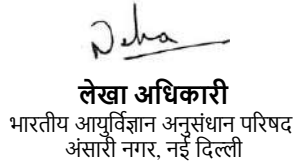 Neha
लेखा अधिकारी
भारतीय आयुर्विज्ञान अनुसंधान परिषद
अंसारी नगर, नई दिल्ली